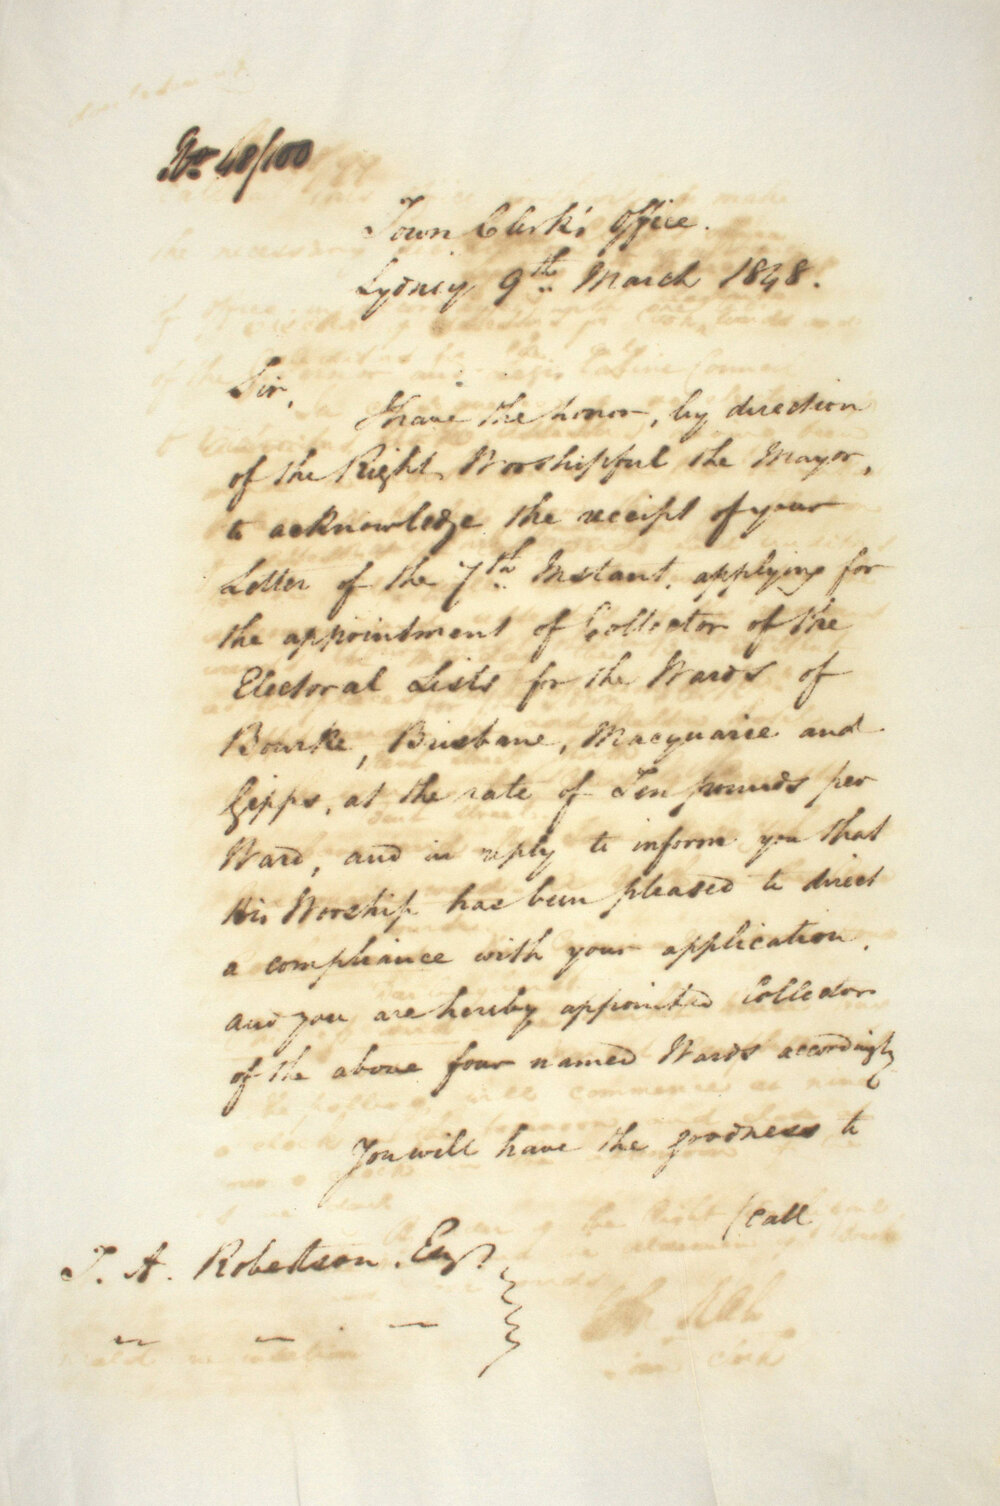 No. 48/100
Town Clerk's Office.
Sydney 9th March 1848.
Sir,
I have the honor, by direction
of the Right Worshipful the Mayor,
to acknowledge the receipt of your
Letter of the 7th Instant, applying for
the appointment of Collector of the
Electoral Lists for the Wards of
Bourke, Brisbane, Macquarie and
Gipps, at the rate of Ten pounds per
Ward, and in reply to inform you that
His Worship has been pleased to direct
a compliance with your application,
and you are hereby appointed Collector
of the above four named Wards accordingly
You will have the goodness to
/call
T. A. Robertson, Esqr